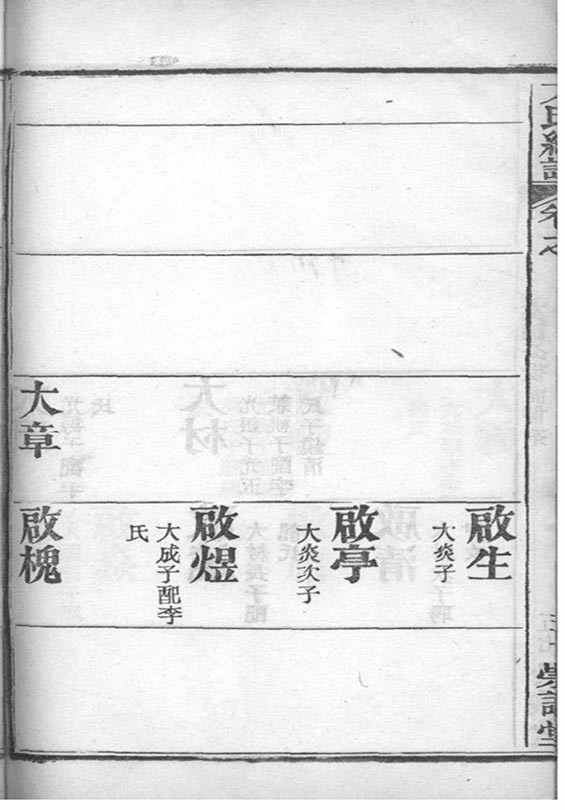 氏總譜
卷之
崇譜堂
大章
啟生
大炎子
啟亭
大炎次子
啟煜
大成子配李
氏
啟槐